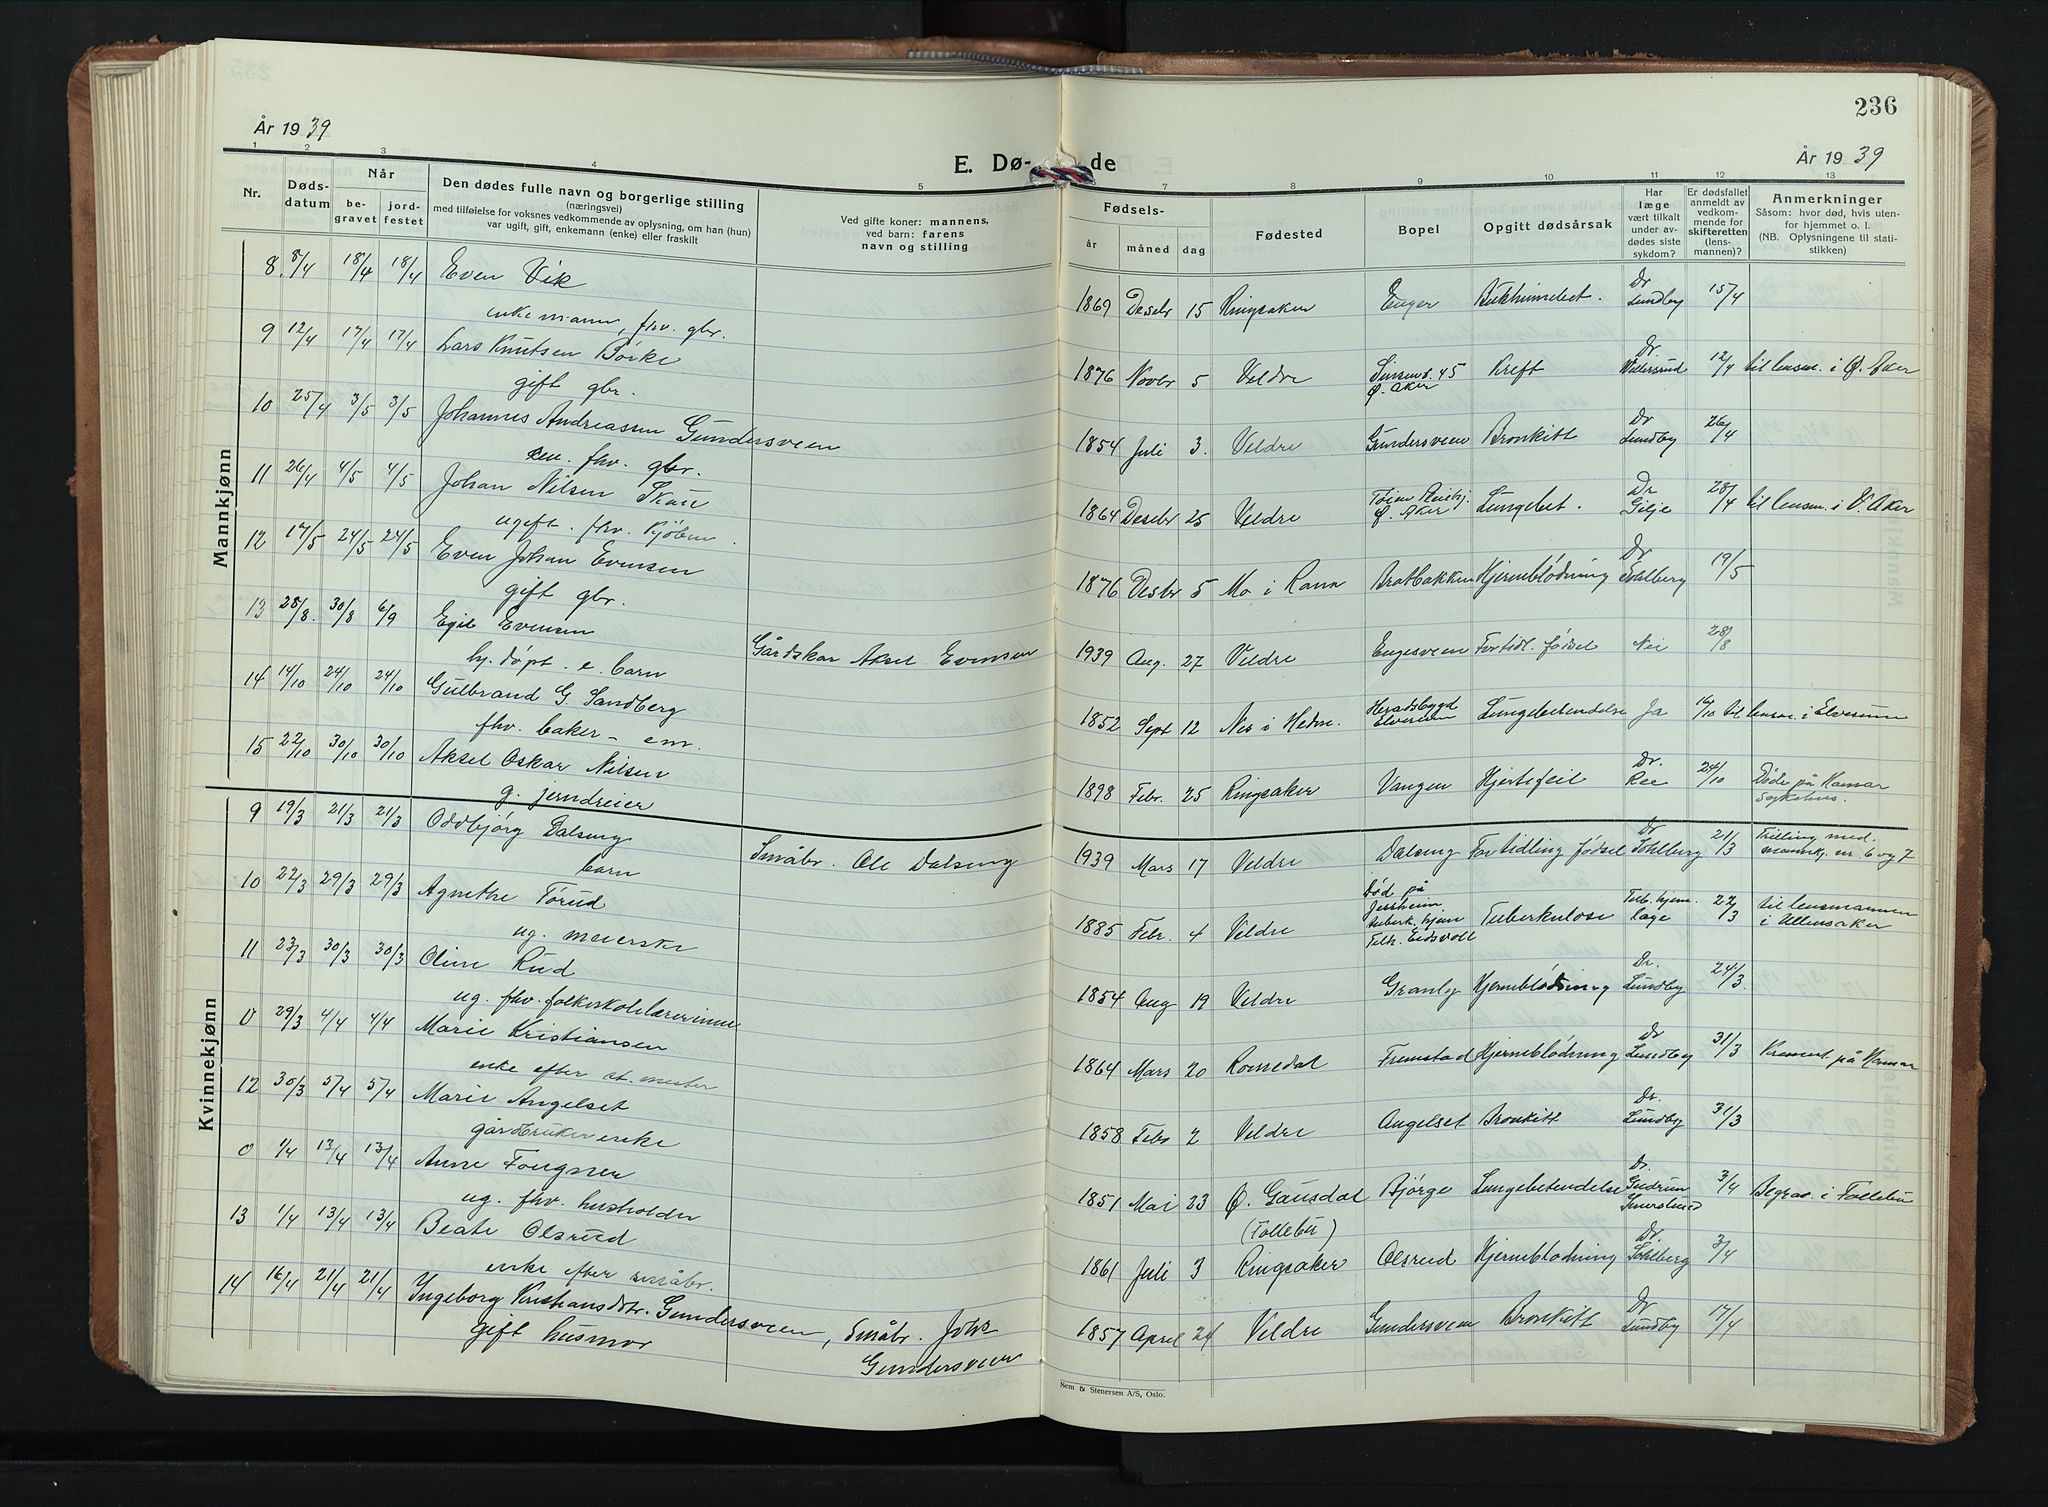 236
År 1939
E. Dø-
de
År 1939
1 2 3 4 5 6 7 8 9 10 11 12 13
Nr. Døds-datum Når be-gravet jord-festet Den dødes fulle navn og borgerlige stilling (næringsvei) med tilføielse for voksnes vedkommende av oplysning, om han (hun) var ugift, gift, enkemann (enke) eller fraskilt Ved gifte koner: mannens, ved barn: farens navn og stilling Fødsels- år måned dag Fødested Bopel Opgitt dødsårsak Har læge vært tilkalt under av-dødes siste sykdom? Er dødsfallet anmeldt av vedkom-mende for skifteretten (lens-mannen)? Anmerkninger Såsom: hvor død, hvis uten-for hjemmet o. l. (NB. Oplysningene til stati-stikken)
Mannkjønn
8. 8/4 18/4 18/4 Even Vik
enkemann, fhv. gbr. 1869 Desebr 15 Ringsaker Enger Dr Lundby 15/4
9 12/4 17/4 17/4 Lars Knutsen Børke
gift gbr. 1876 Novbr 5 Veldre Sinsenv. 45 Ø. Aker Kreft Dr. 12/4 til lensm. i Ø. Aker
10 25/4 3/5 3/5 Johannes Andreassen Gundersveen
fhv. gbr. 1854 Juli 3. Veldre Gundersveen Bronkitt Dr Lundby 26/4
11 26/4 4/5 4/5 Johan Nilsen Skau
ugift. fhv. kjøbm. 1864 Desebr 25 Veldre Ø. Aker Lungebet. Dr Gilje 28/4 til lensm. i V. Aker
12 17/5 24/5 24/5 Even Johan Evensen
gift gbr. 1876 Desbr 5 Mo i Rana Bratbakken Hjerneblødning Dr Sohlberg 19/5
13 28/8. 30/8 6/9 Egil Evensen
hj. døpt. e. barn Gårdskar Aksel Evensen 1939 Aug. 27 Veldre Engesveen Fortidl. fødsel Nei 28/8
14 14/10 24/10 24/10 Gulbrand G. Sandberg
fhv. baker - em. 1852 Sept 12 Nes i Hedm. Heradsbygd Elverum Lungebetendelse Ja 16/10 til lensm. i Elverum
15 22/10 30/10 30/10 Aksel Oskar Nilsen
g. jerndreier 1898 Febr. 25 Ringsaker Vangen Hjertefeil Dr. Ree 24/10 Døde på Hamar sykehus.
Kvinnekjønn
9 19/3 21/3 21/3 Oddbjørg Dalseng
barn Småbr. Ole Dalseng 1939 Mars 17 Veldre Dalseng Fortidling fødsel Dr Sohlberg 21/3 Trilling med. mannkj. nr 6 og 7
10 22/3 29/3 29/3 Agnethe Tørud
ug. meierske 1885 Febr. 4 Veldre Død på Jessheim tuberk. hjem Eidsvoll Tuberkulose Tub. hjem. læge 22/3 til lensmannen i Ullensaker
11 23/3 30/3 30/3 Oline Rud
ug. fhv. folkeskolelærerinne 1854 Aug 19 Veldre Granly Hjerneblødning Dr. Lundby 24/3.
0 29/3 4/4 4/4 Marie Kristiansen
enke efter st. mester 1864 Mars 20 Romedal Fremstad Hjerneblødning Dr Lundby 31/3 Kremert på Hamar
12 30/3 5/4 5/4 Marie Angelset
gårdbrukerenke 1858 Febr 2 Veldre Angelset Bronkitt Dr. Lundby 31/3
0 1/4 13/4 13/4 Anne Fougner
ug. fhv. husholder 1851 Mai 23 Ø. Gausdal (Follebu) Bjørge Lungebetendelse Dr. Gudrun 3/4 Begrav. i Follebu
13 1/4 13/4 13/4 Beate Olsrud
enke efter småbr. 1861 Juli 3 Ringsaker Olsrud Hjerneblødning Dr. Sohlberg 3/4
14 16/4 21/4 21/4 Ingeborg Kristiansdtr. Gundersveen, Småbr. Johs
gift husmor Gundersveen 1857 April 24 Veldre Gundersveen Bronkitt Dr Lundby 17/4
Sem & Stenersen A/S, Oslo.